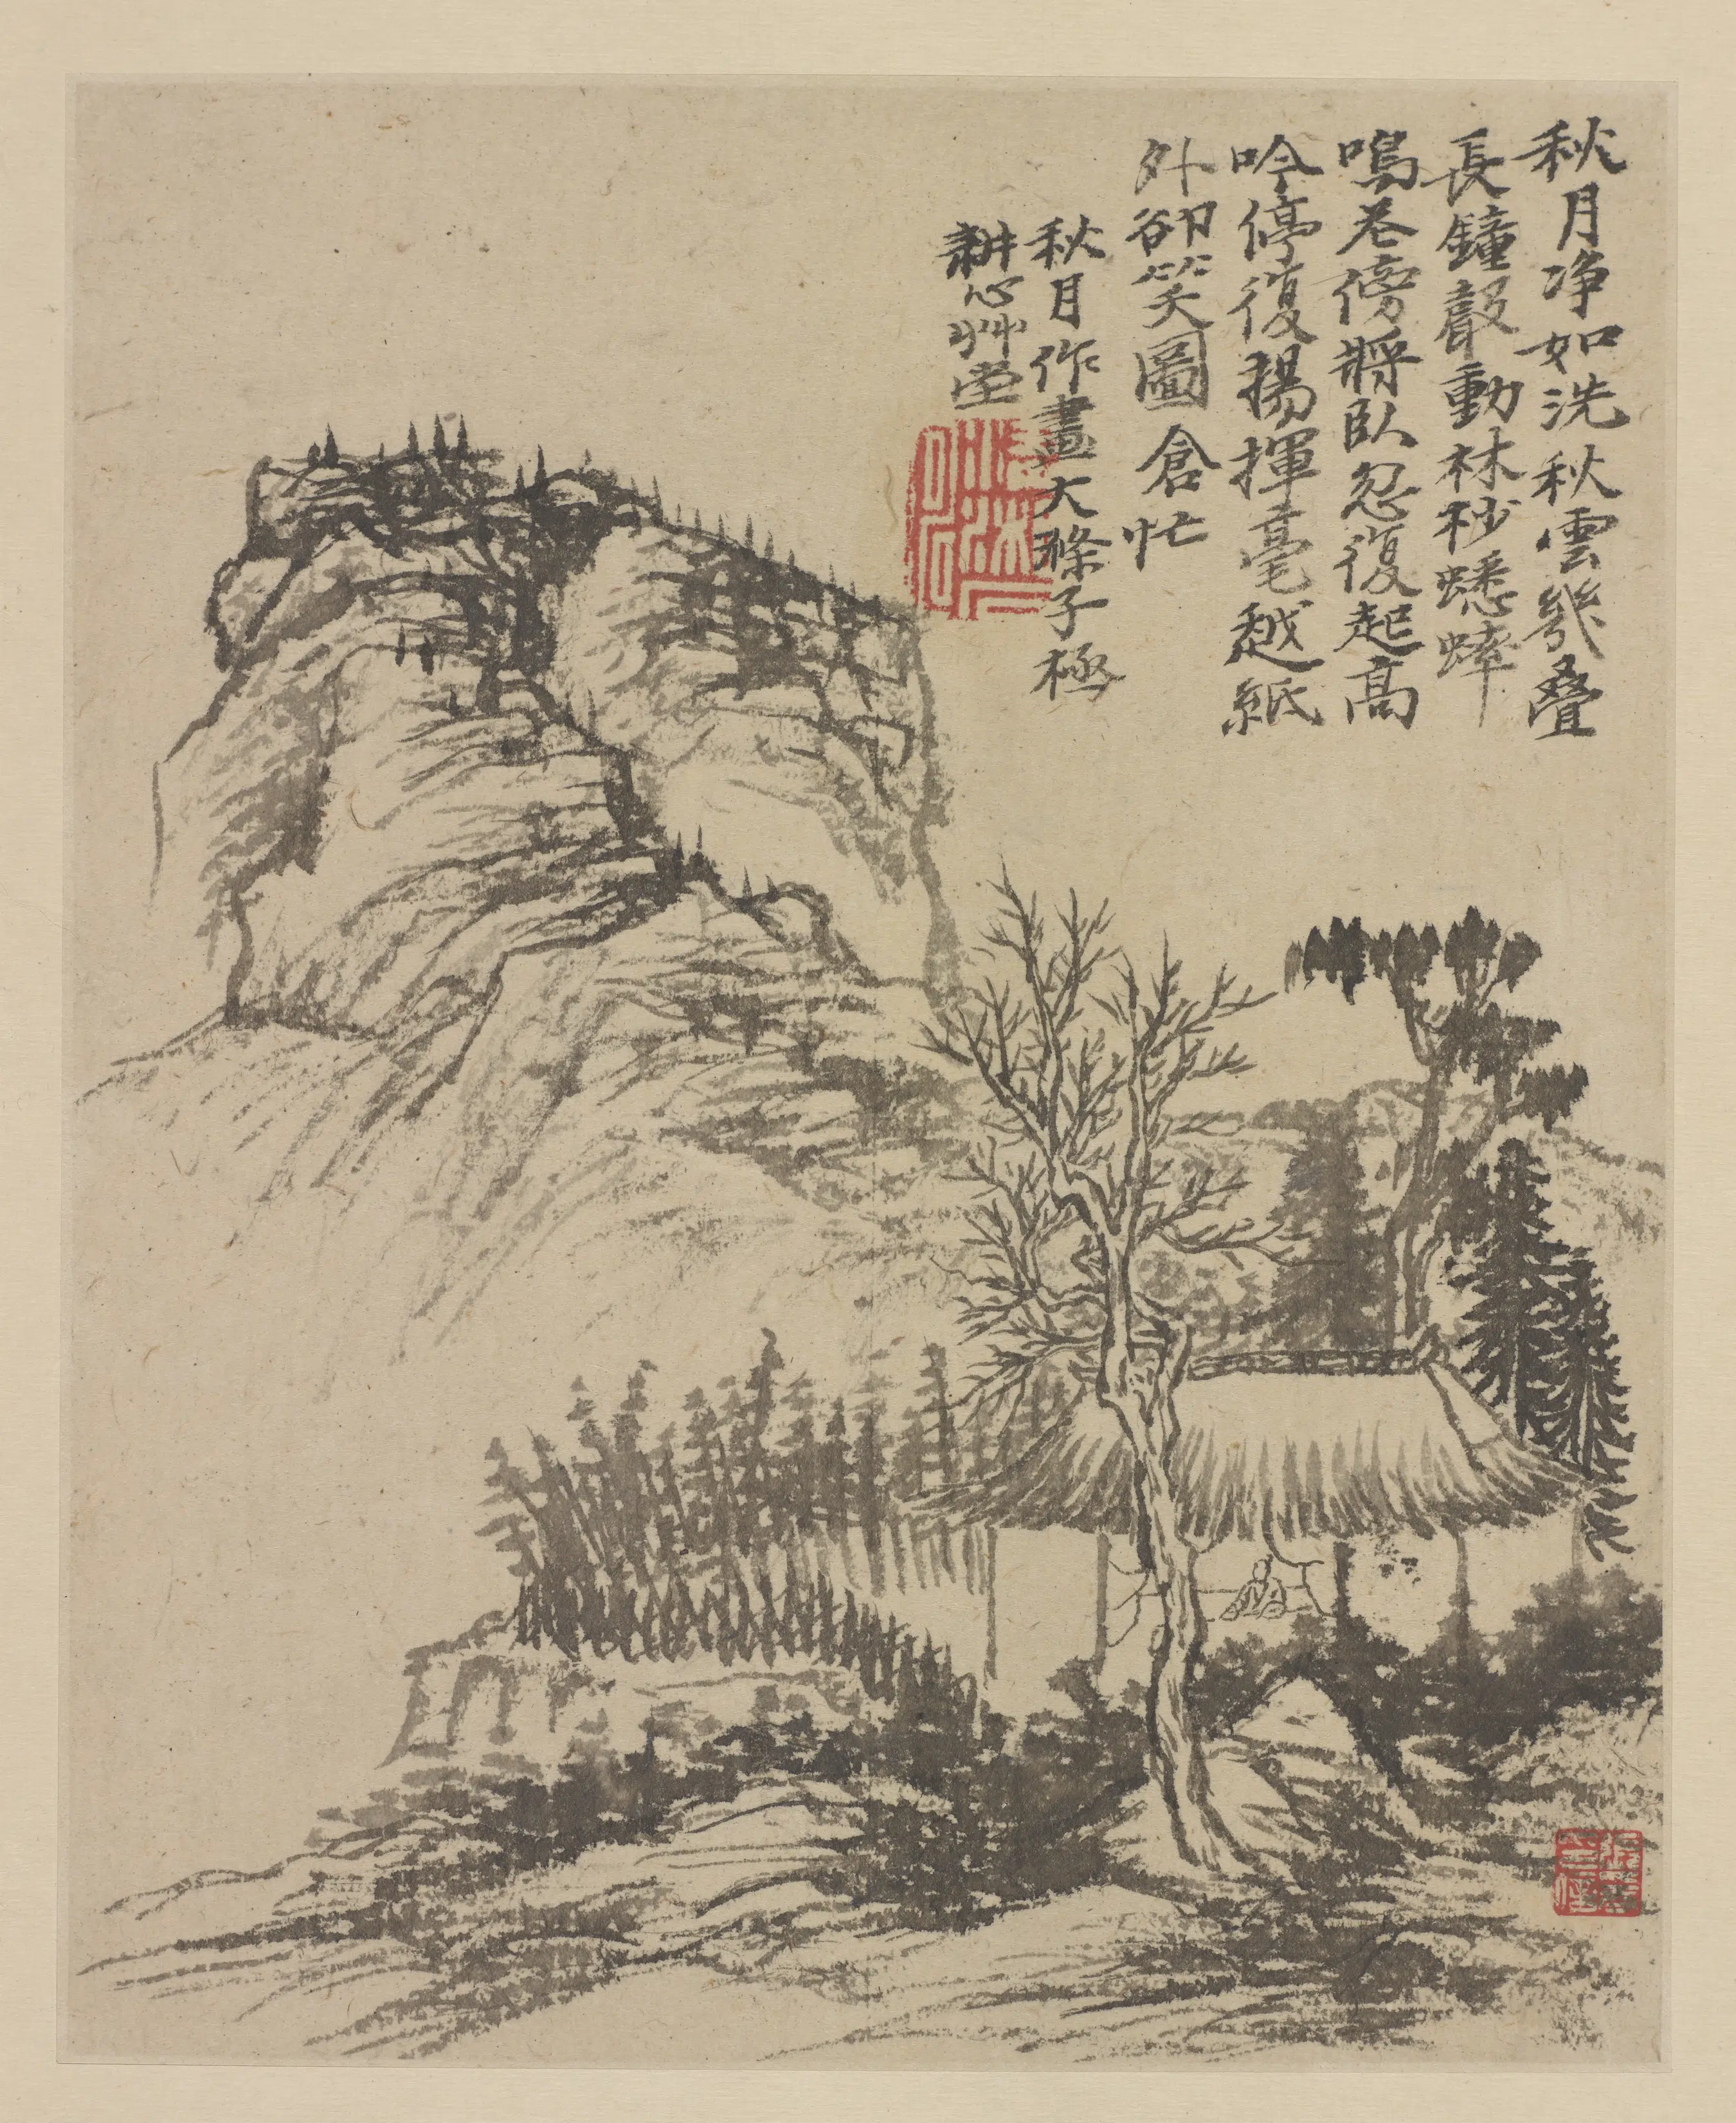 秋月净如洗秋雲幾疊
長鐘聲動林秒蟋蟀
鳴巷傍將臥忽復起高
吟停復揚揮毫越紙
外卻笑圖倉忙
秋月作畫大滌子極
耕心艸堂